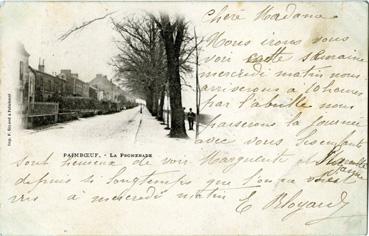 Chère Madame
Nous irons vous
voir cette semaine
mercredi matin nous
arriverons a 10 heures
par l'abeille nous
passerons la journée
avec vous les enfants
sont heureux de voir Marguerite et
depuis si longtemps que l'on ne s'est
vus a mercredi matin E
PAIMBŒUF. - LA PROMENADE
Imp. F. à Paimbœuf